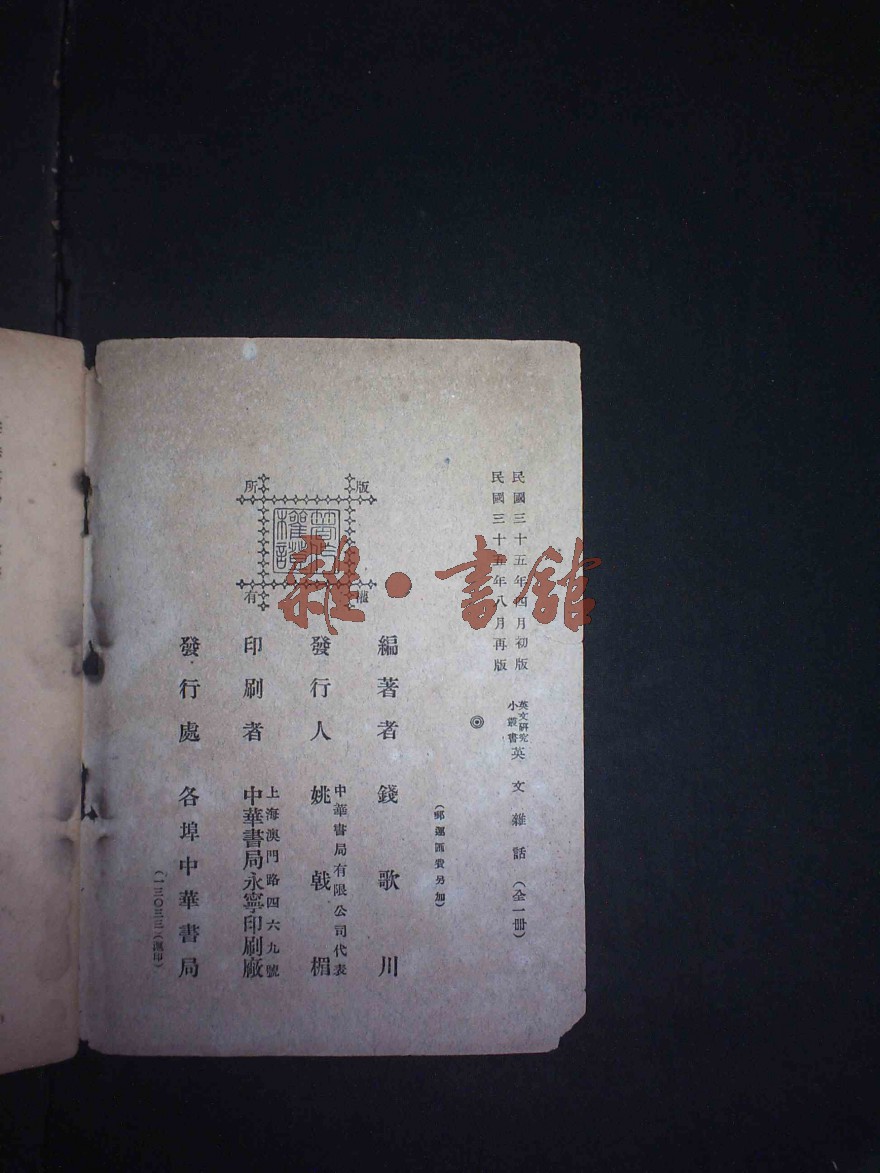 民國三十五年四月初版
民國三十五年八月再版
英文研究
小叢書
英文雜話（全一冊）
◎
（郵運匯費另加）
版權所有
編著者 錢歌川
中華書局有限公司代表
發行人 姚戟楣
上海澳門路四六九號
印刷者 中華書局永寧印刷廠
發行處 各埠中華書局
（一三〇三三）（滬印）
雜·書館